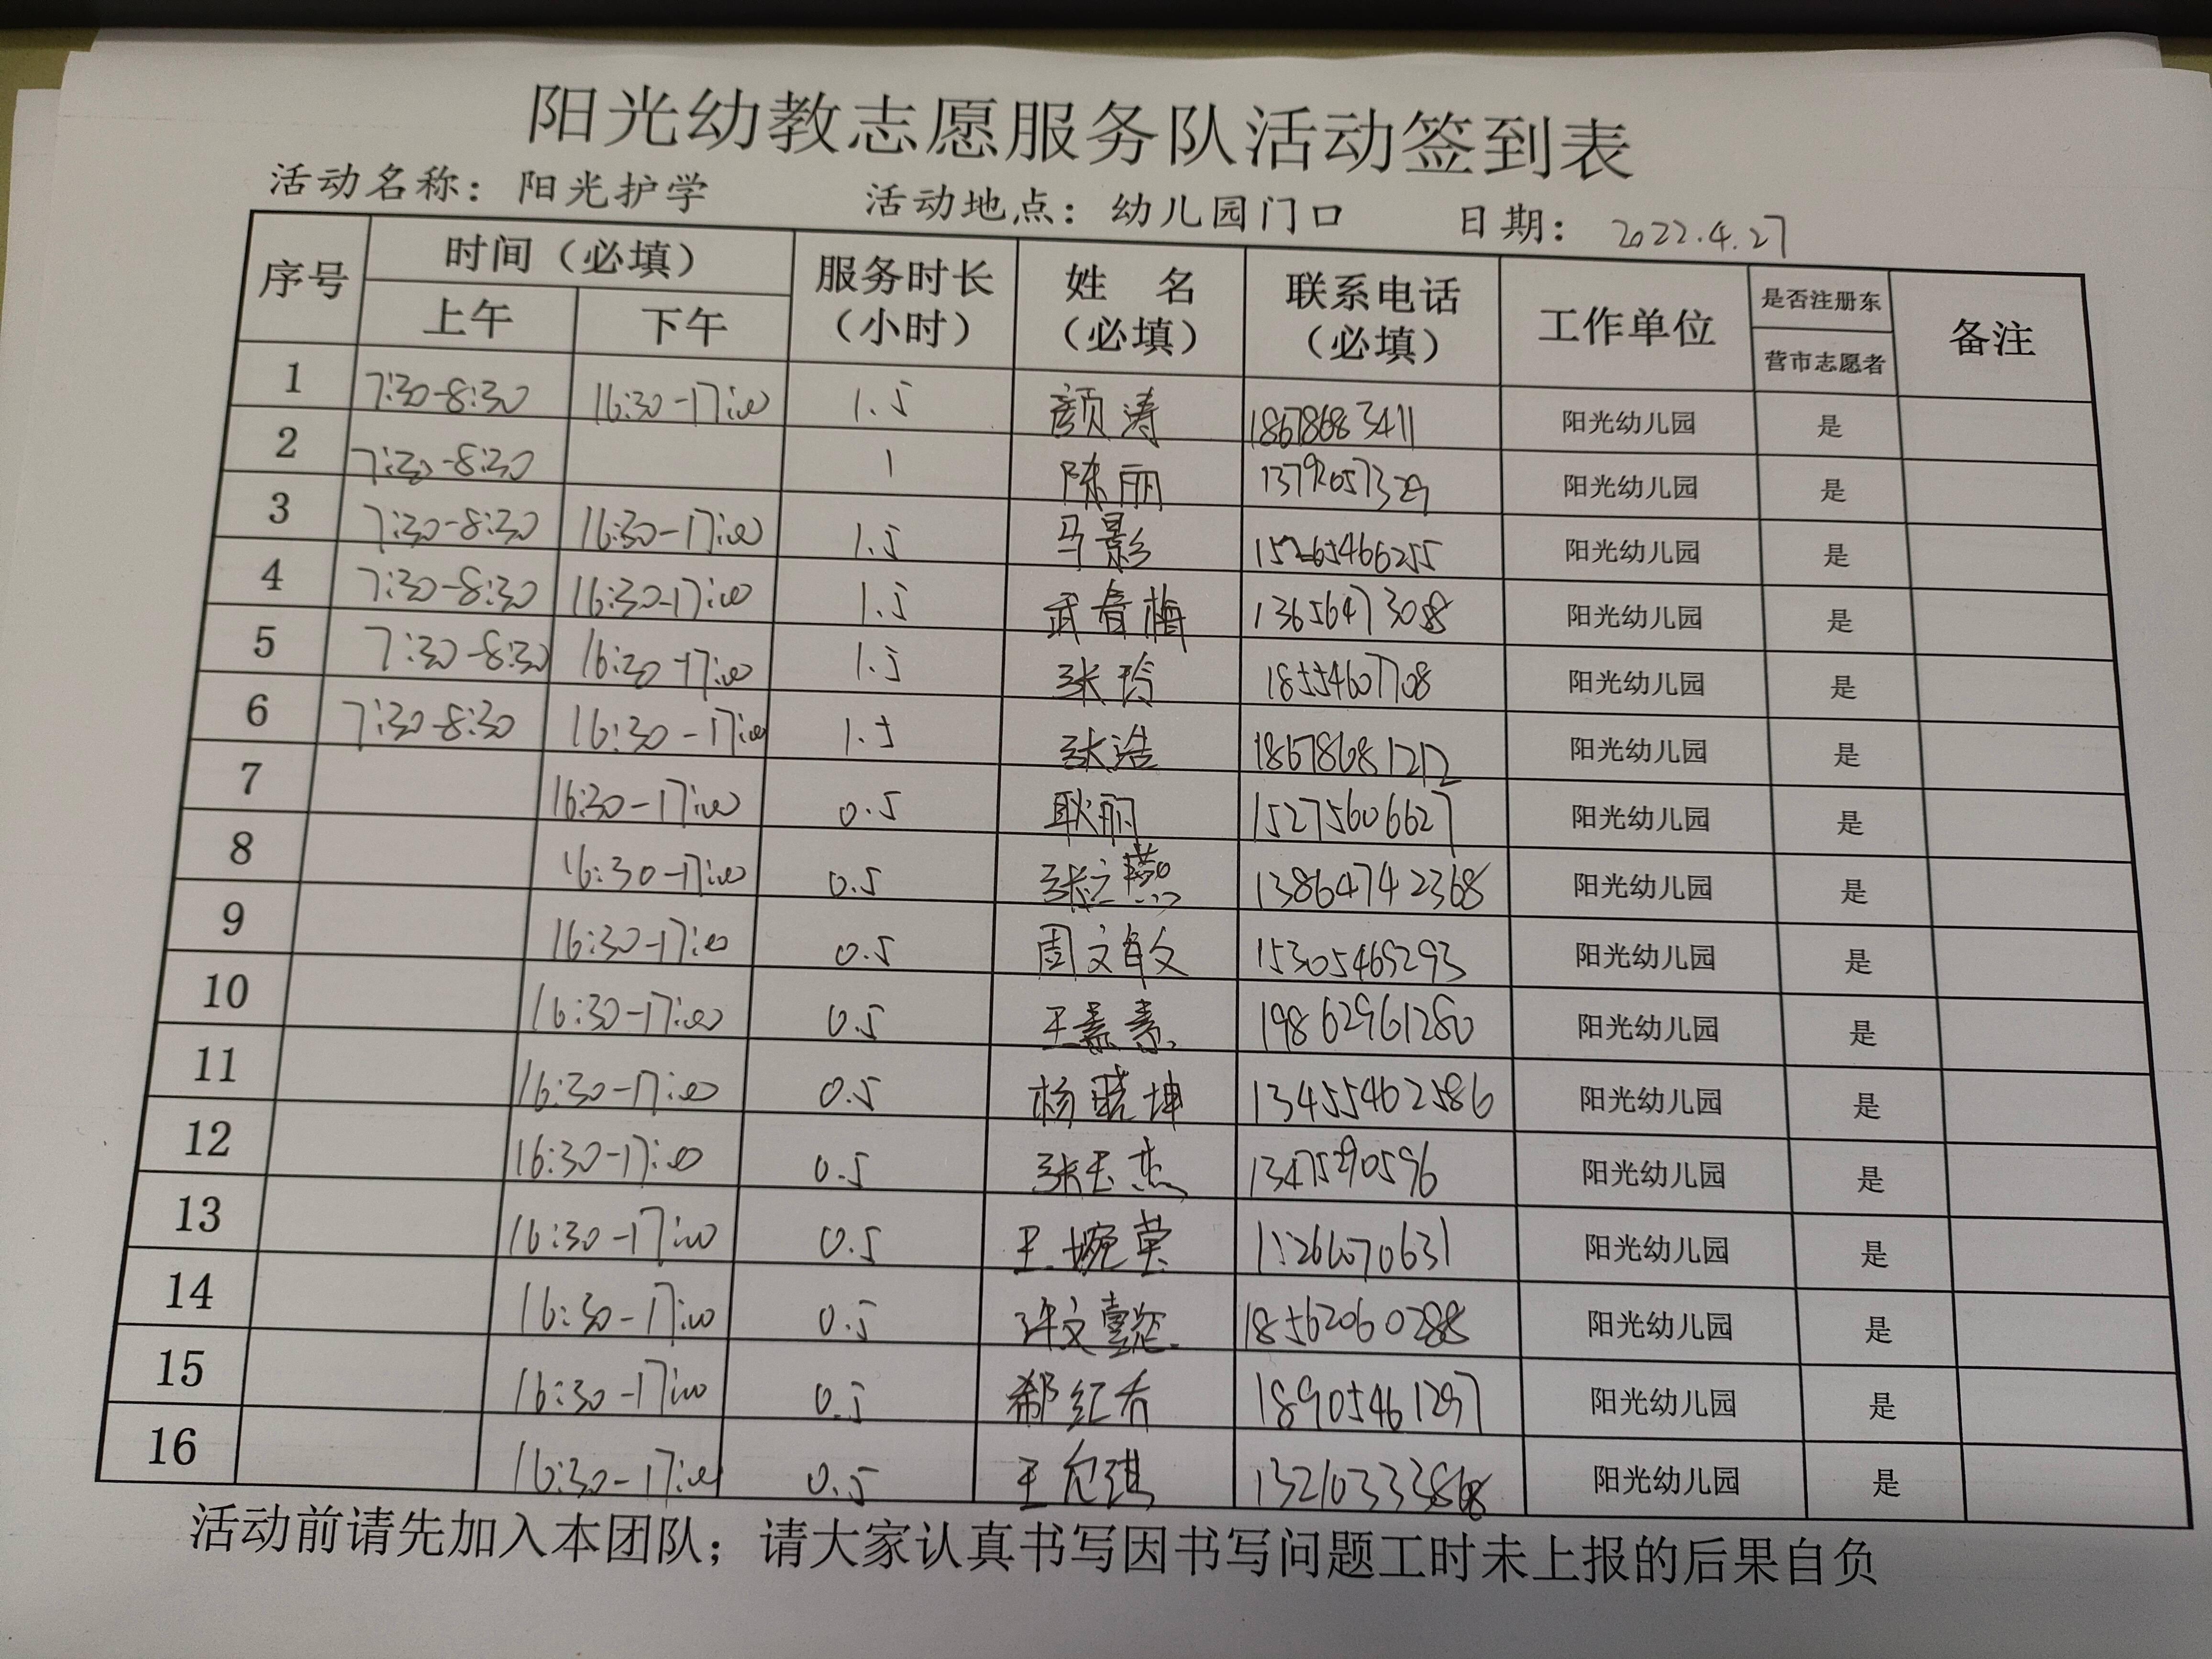 阳光幼教志愿服务队活动签到表
活动名称：阳光护学 活动地点：幼儿园门口 日期：2022.4.27
序号 时间（必填） 服务时长（小时） 姓 名（必填） 联系电话（必填） 工作单位 是否注册东营市志愿者 备注
上午 下午
1 7:30-8:30 16:30-17:00 1.5 颜涛 18678683411 阳光幼儿园 是
2 7:30-8:30 1 陈丽 阳光幼儿园 是
3 7:30-8:30 16:30-17:00 1.5 马影 15265466255 阳光幼儿园 是
4 7:30-8:30 16:30-17:00 1.5 武春梅 13656473058 阳光幼儿园 是
5 7:30-8:30 16:30-17:00 1.5 张玲 18554607708 阳光幼儿园 是
6 7:30-8:30 16:30-17:00 1.5 张浩 18678681212 阳光幼儿园 是
7 16:30-17:00 0.5 耿丽 15275606627 阳光幼儿园 是
8 16:30-17:00 0.5 张立燕 13864742368 阳光幼儿园 是
9 16:30-17:00 0.5 周文 15305469293 阳光幼儿园 是
10 16:30-17:00 0.5 19862961280 阳光幼儿园 是
11 16:30-17:00 0.5 杨晓坤 13455462586 阳光幼儿园 是
12 16:30-17:00 0.5 张玉杰 13475290596 阳光幼儿园 是
13 16:30-17:00 0.5 王婉莹 阳光幼儿园 是
14 16:30-17:00 0.5 许文懿 18562060288 阳光幼儿园 是
15 16:30-17:00 0.5 郗红 18905461297 阳光幼儿园 是
16 16:30-17:00 0.5 王 琪 阳光幼儿园 是
活动前请先加入本团队；请大家认真书写因书写问题工时未上报的后果自负